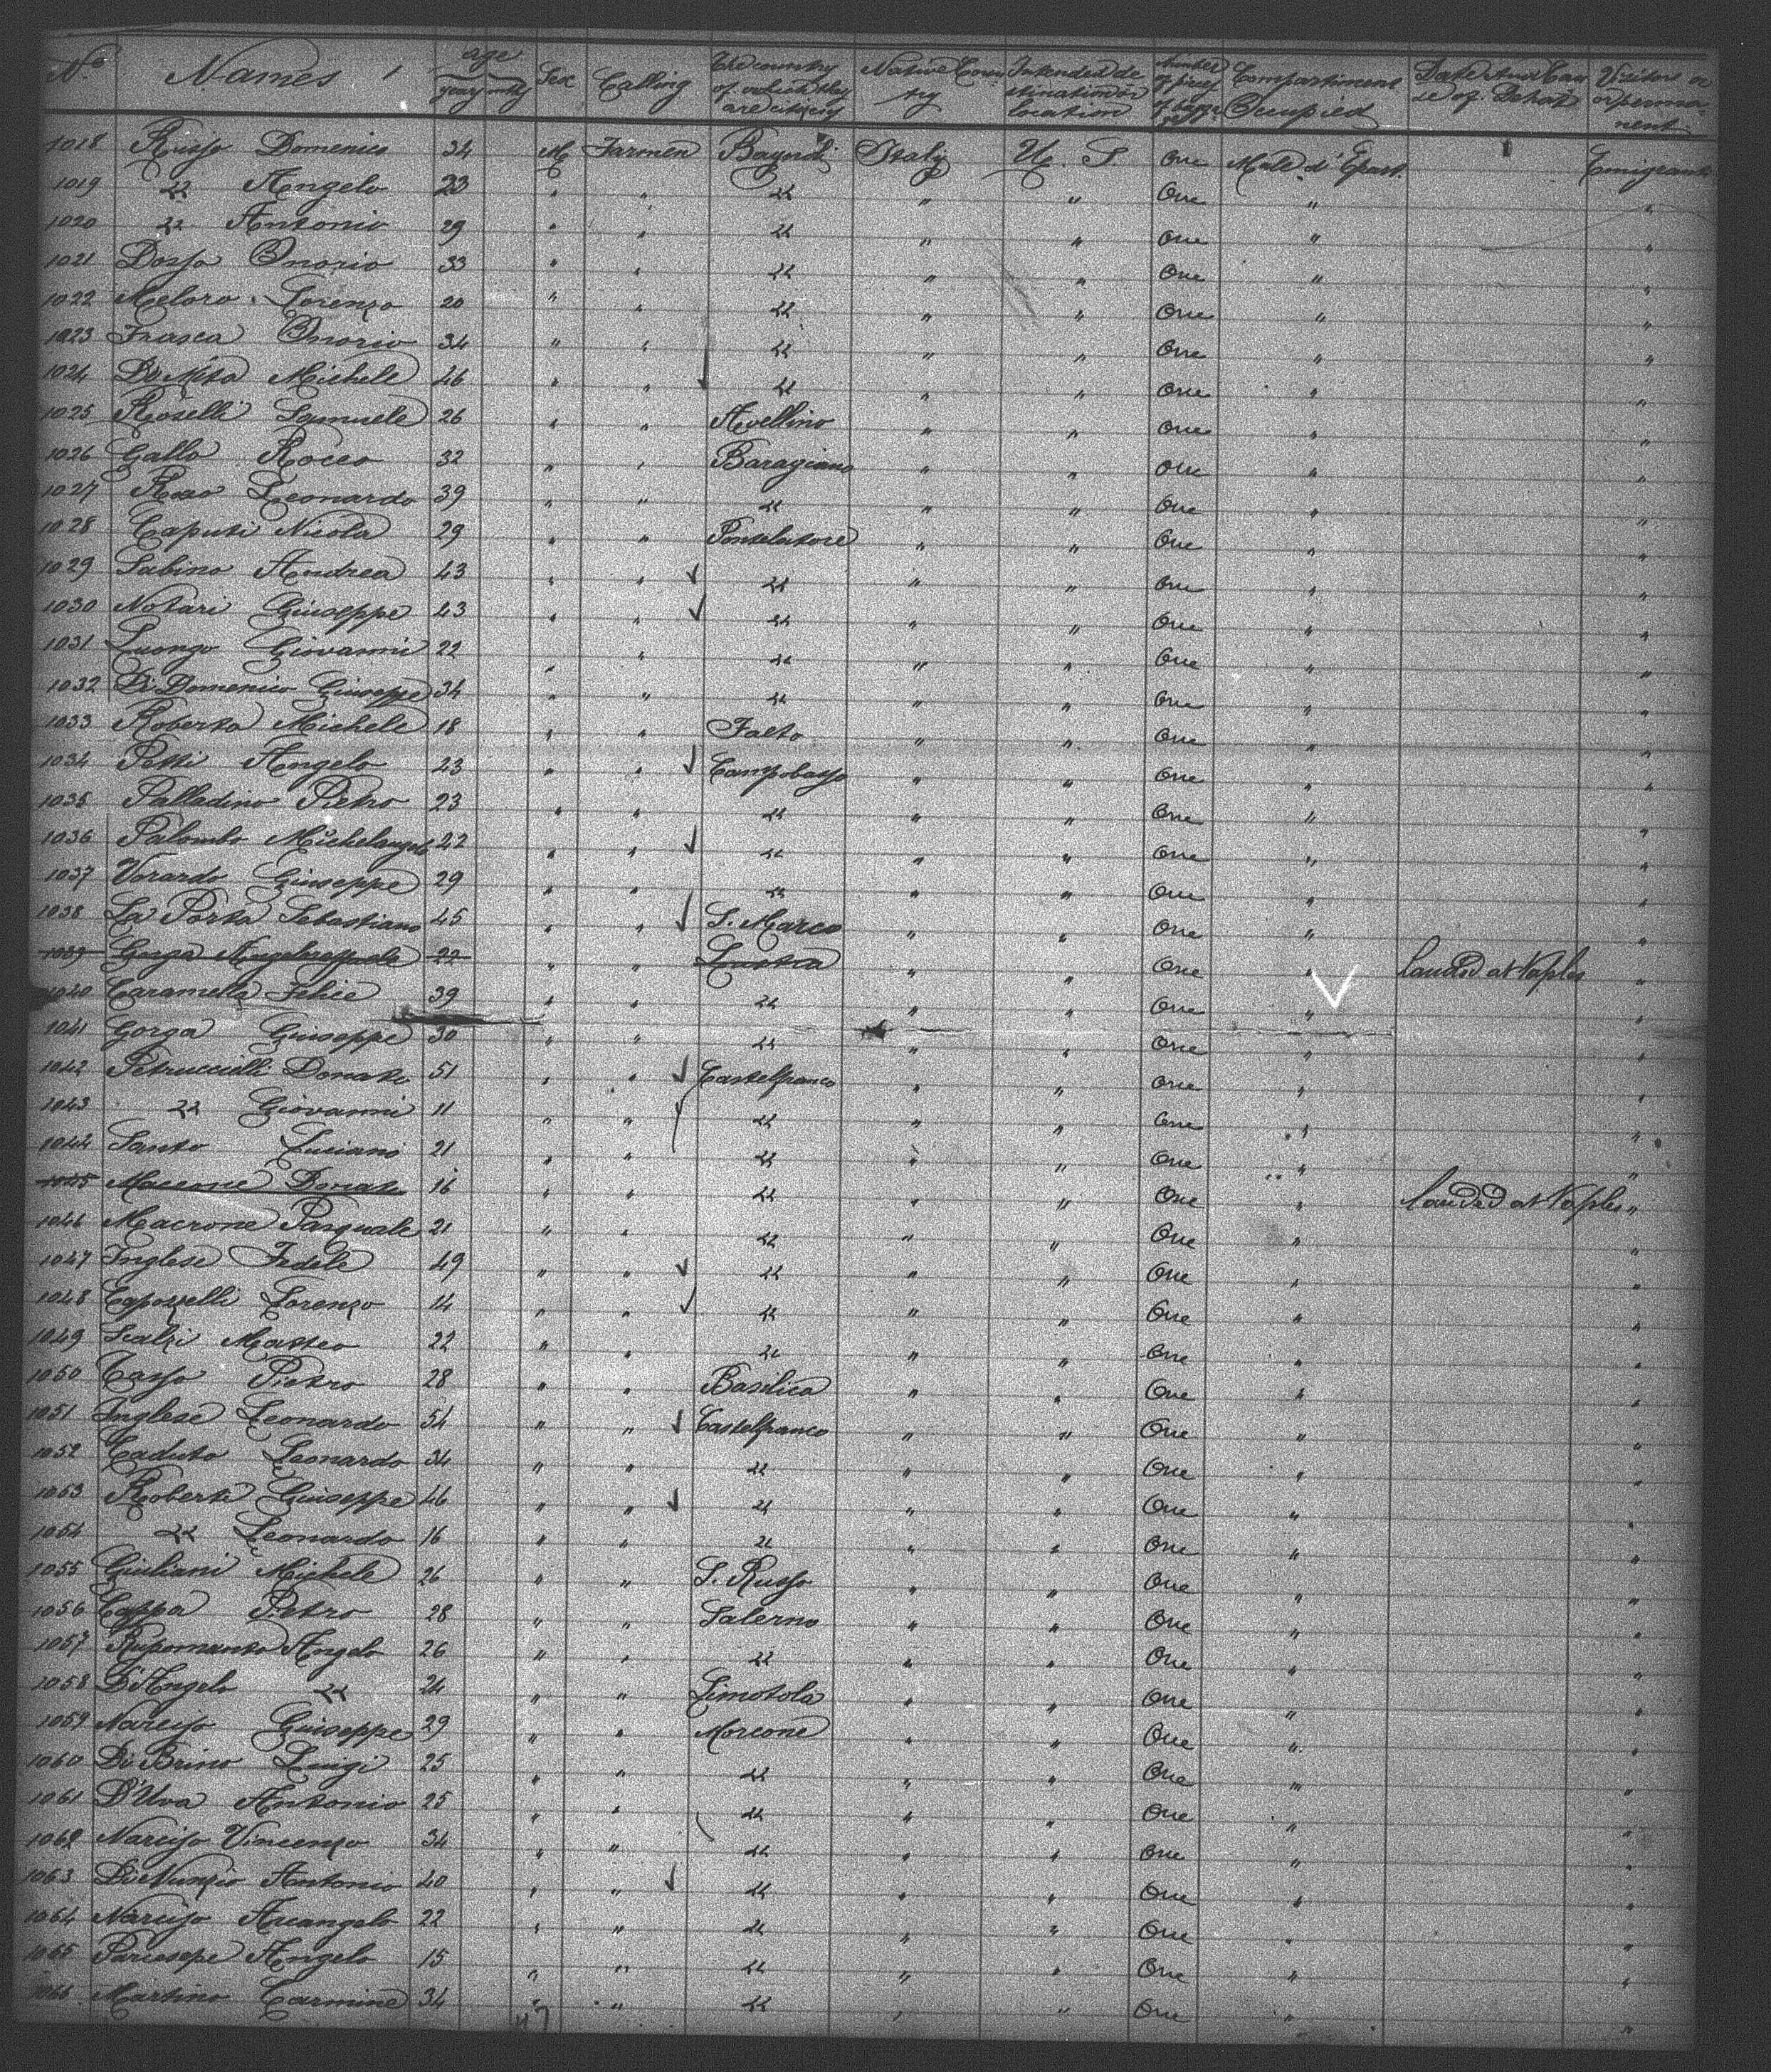 No Names age years mths Sex Calling The country of which they are citizens Native Country Intended destination or location Number of pieces of baggage Compartiment Occupied Date and Cause of Death Visitors or permanent
1018 Russo Domenico 34 M Farmer Italy U. S One Emigrants
1019 " Angelo 23 " " " " " One " "
1020 " Antonio 29 " " " " " One " "
1021 Dosso Onorio 33 " " " " " One " "
1022 Meloro Lorenzo 20 " " " " " One " "
1023 Frasca Onorio 34 " " " " " One " "
1024 Michele 46 " " " " " One " "
1025 Roselli Samuele 26 " " Avellino " " One " "
1026 Gallo Rocco 32 " " Baragiano " " One " "
1027 Leonardo 39 " " " " " One " "
1028 Caputi Nicola 29 " " Pontelatore " " One " "
1029 Sabino Andrea 43 " " " " " One " "
1030 Notari Giuseppe 43 " " " " " One " "
1031 Luongo Giovanni 22 " " " " " One " "
1032 Di Domenico Giuseppe 34 " " " " " One " "
1033 Roberto Michele 18 " " Falto " " One " "
1034 Petti Angelo 23 " " Campobasso " " One " "
1035 Palladino Pietro 23 " " " " " One " "
1036 Palombo Michelangelo 22 " " " " " One " "
1037 Varardo Giuseppe 29 " " " " " One " "
1038 La Porta Sebastiano 45 " " S. Marco " " One " "
1039 Gorga 22 " " Lustra " " One " Landed at Naples "
1040 Caramella Felice 39 " " " " " One " "
1041 Gorga Giuseppe 30 " " " " " One " "
1042 Petruccielli Donato 51 " " Castelfranco " " One " "
1043 " Giovanni 11 " " " " " One " "
1044 Santo Luciano 21 " " " " " One " "
1045 Macrone Donato 16 " " " " " One " Landed at Naples "
1046 Macrone Pasquale 21 " " " " " One " "
1047 Inglese Fedele 49 " " " " " One " "
1048 Capozzelli Lorenzo 14 " " " " " One " "
1049 Scalzi Matteo 22 " " " " " One " "
1050 Casso Pietro 28 " " Basilica " " One " "
1051 Inglese Leonardo 54 " " Castelfranco " " One " "
1052 Caduto Leonardo 34 " " " " " One " "
1053 Roberti Giuseppe 46 " " " " " One " "
1054 " Leonardo 16 " " " " " One " "
1055 Giuliani Michele 26 " " S. Russo " " One " "
1056 Coppa Pietro 28 " " Salerno " " One " "
1057 Angelo 26 " " " " " One " "
1058 D'Angelo " 24 " " Limotola " " One " "
1059 Narciso Giuseppe 29 " " Morcone " " One " "
1060 Di Brino Luigi 25 " " " " " One " "
1061 D'Uva Antonio 25 " " " " " One " "
1062 Narciso Vincenzo 34 " " " " " One " "
1063 Di Nunzio Antonio 40 " " " " " One " "
1064 Narciso Arcangelo 22 " " " " " One " "
1065 Angelo 15 " " " " " One " "
1066 Martino Carmine 34 " " " " " One " "